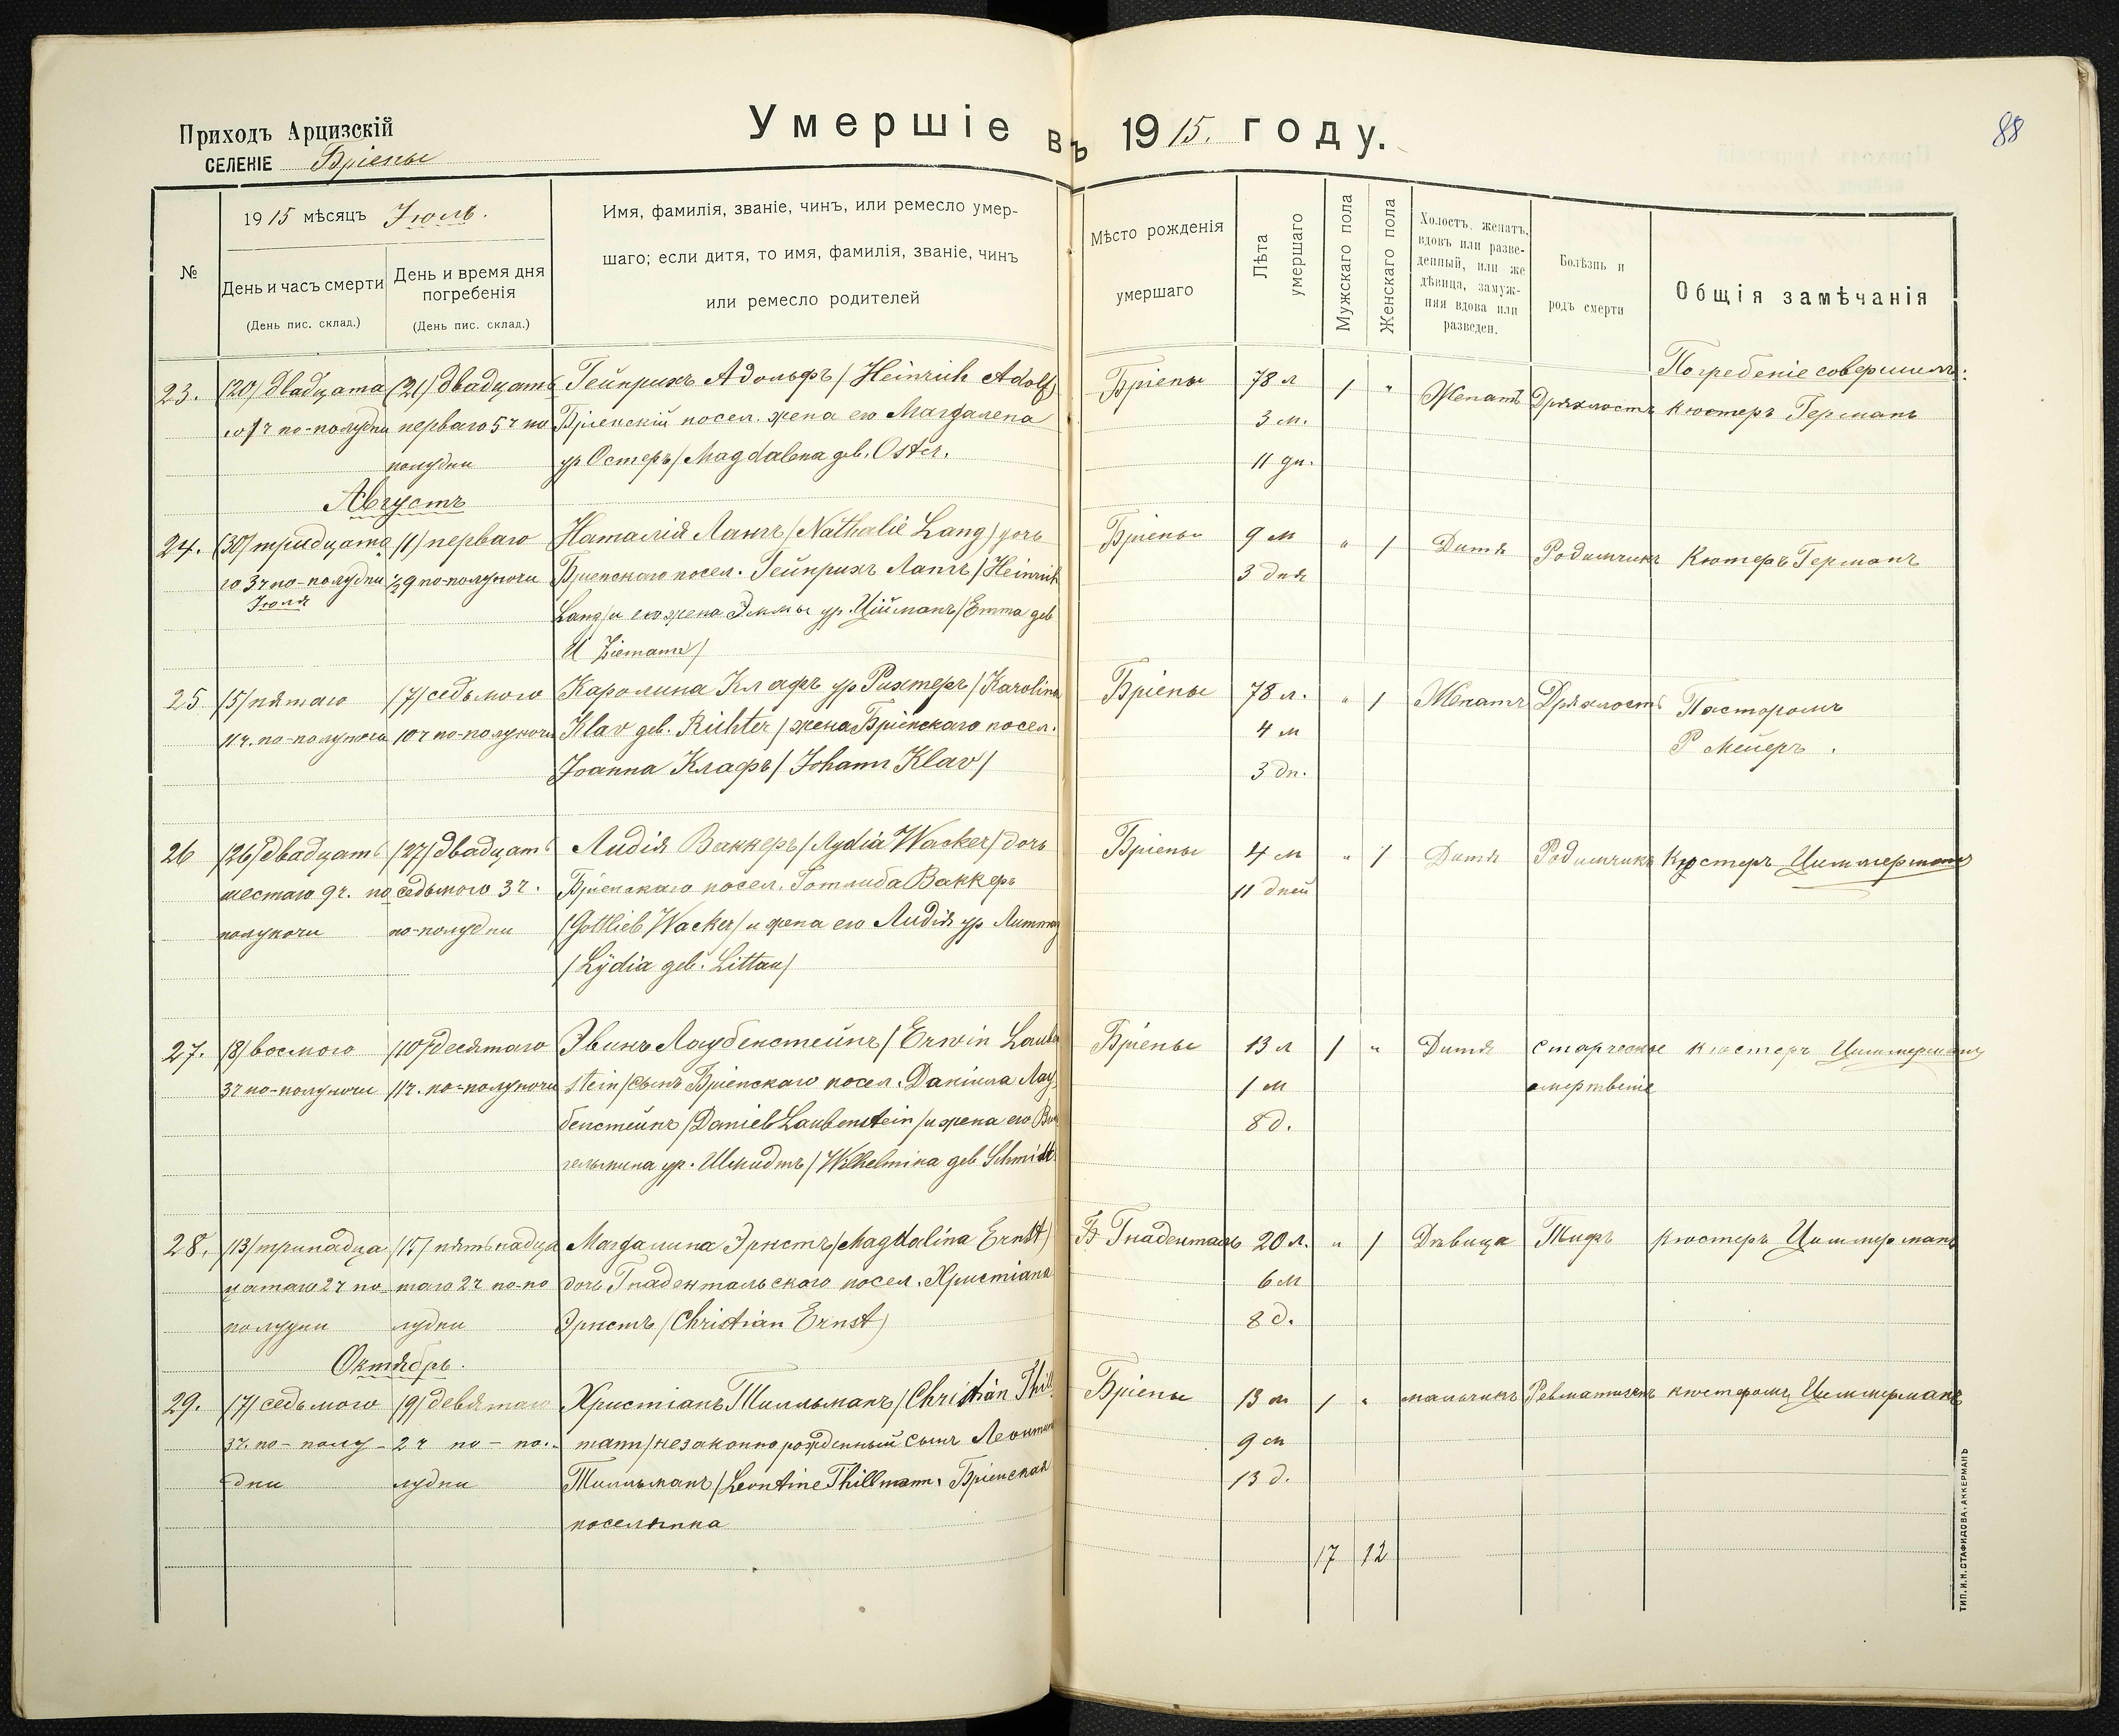 Приходъ Арцизскій
СЕЛЕНІЕ Бріены
Умершіе въ 1915. году.
88
№
1915 мѣсяцъ Іюль.
День и часъ смерти
(День пис. склад.)
День и время дня погребенія
(День пис. склад.)
Имя, фамилія, званіе, чинъ, или ремесло умер-
шаго; если дитя, то имя, фамилія, званіе, чинъ
или ремесло родителей
Мѣсто рожденія
умершаго
Лѣта умершаго
Мужскаго пола
Женскаго пола
Холостъ, женатъ,
вдовъ или разве-
денный, или же
дѣвица, замуж-
няя вдова или
разведен.
Болѣзнь и
родъ смерти
Общія замѣчанія
Погребеніе совершилъ:
23. (20) двадцата (21) двадцать Гейнрихъ Адольфъ / Heinrich Adolf) Бріены 78 л 1 " Женатъ Дряхлость Кюстеръ Германъ
го 1 ч по-полудни перваго 5 ч по Бріенскій посел. жена его Магдалена 3 м.
полудни ур Остеръ / Magdalena geb. Oster. 11 дн.
Августъ
24. (30) тридцата (1) перваго Наталія Лангъ / Nathalie Lang) дочь Бріены 9 м " 1 Дитя Родимчикъ Кюстеръ Германъ
го 3 ч по-полудни ½9 по-полуночи Бріенскаго посел. Гейнрихъ Лангъ / Heinrich 3 дня
Іюля
Lang / и его жена Эммы ур. / Emma geb
25 (5) пятаго (7) седьмого Каролина Клафъ ур Рихтеръ / Karolina Бріены 78 л. " 1 Женатъ Дряхлость Пасторомъ
11 ч. по-полуночи 10 ч по-полуночи Klav geb. Richter / жена Бріенскаго посел. 4 м Р Мейеръ.
Іоанна Клафъ / Johann Klav / 3 дн.
26 (26) двадцать (27) двадцать Лидія Ваккеръ / Lydia Wacker / дочь Бріены 4 м " 1 Дитя Родимчикъ Кюстеръ Циммерманъ
шестаго 9 ч. по седьмого 3 ч. Бріенскаго посел. Готлиба Ваккеръ 11 дней
полуночи по-полудни (Gottlieb Wacker / и жена его Лидія ур
/ Lÿdia geb. Littau /
27. (8) восмого (10) десятаго Эвинъ Лаубенстейнъ / Erwin Lauben Бріены 13 л 1 " Дитя Старческое Кюстеръ Циммерманъ
3 ч по-полуночи 11 ч. по-полуночи stein / сынъ Бріенскаго посел. Даніила Лау 1 м омертвеніе
бенстейнъ / Daniel Laubenstein / и жена его Ви 8 д.
гельмина ур. Шмидтъ / Wilhelmina geb Schmidt
28. (13) тринадца (15) пятьнадца Магдалина Эрнстъ / Magdalina Ernst) Гнаденталь 20 л. " 1 Дѣвица Тифъ Кюстеръ Циммерманъ
цатаго 2 ч по- таго 2 ч по-по дочь Гнадентальскаго посел. Христіана 6 м
полудни лудни Эрнстъ / Christian Ernst) 8 д.
Октябрь.
29. (7) седьмого (9) девятаго Христіанъ Тилльманъ / Christian Thill Бріены 13 л 1 " мальчикъ Ревматизмъ кюстеромъ Циммерманъ
3 ч. по-полу- 2 ч по-по- mann / незаконно рожденный сынъ Леонтин 9 м
дни лудни Тилльманъ / Leontine Thillmann, Бріенская 13 д.
поселянка
17 12
ТИП. И. Н. СТАФИДОВА, АККЕРМАНЪ